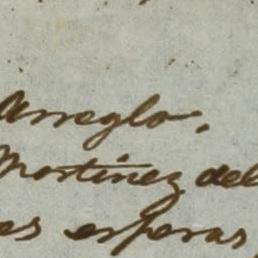 Arreglo.
Martinez del
es esperas,